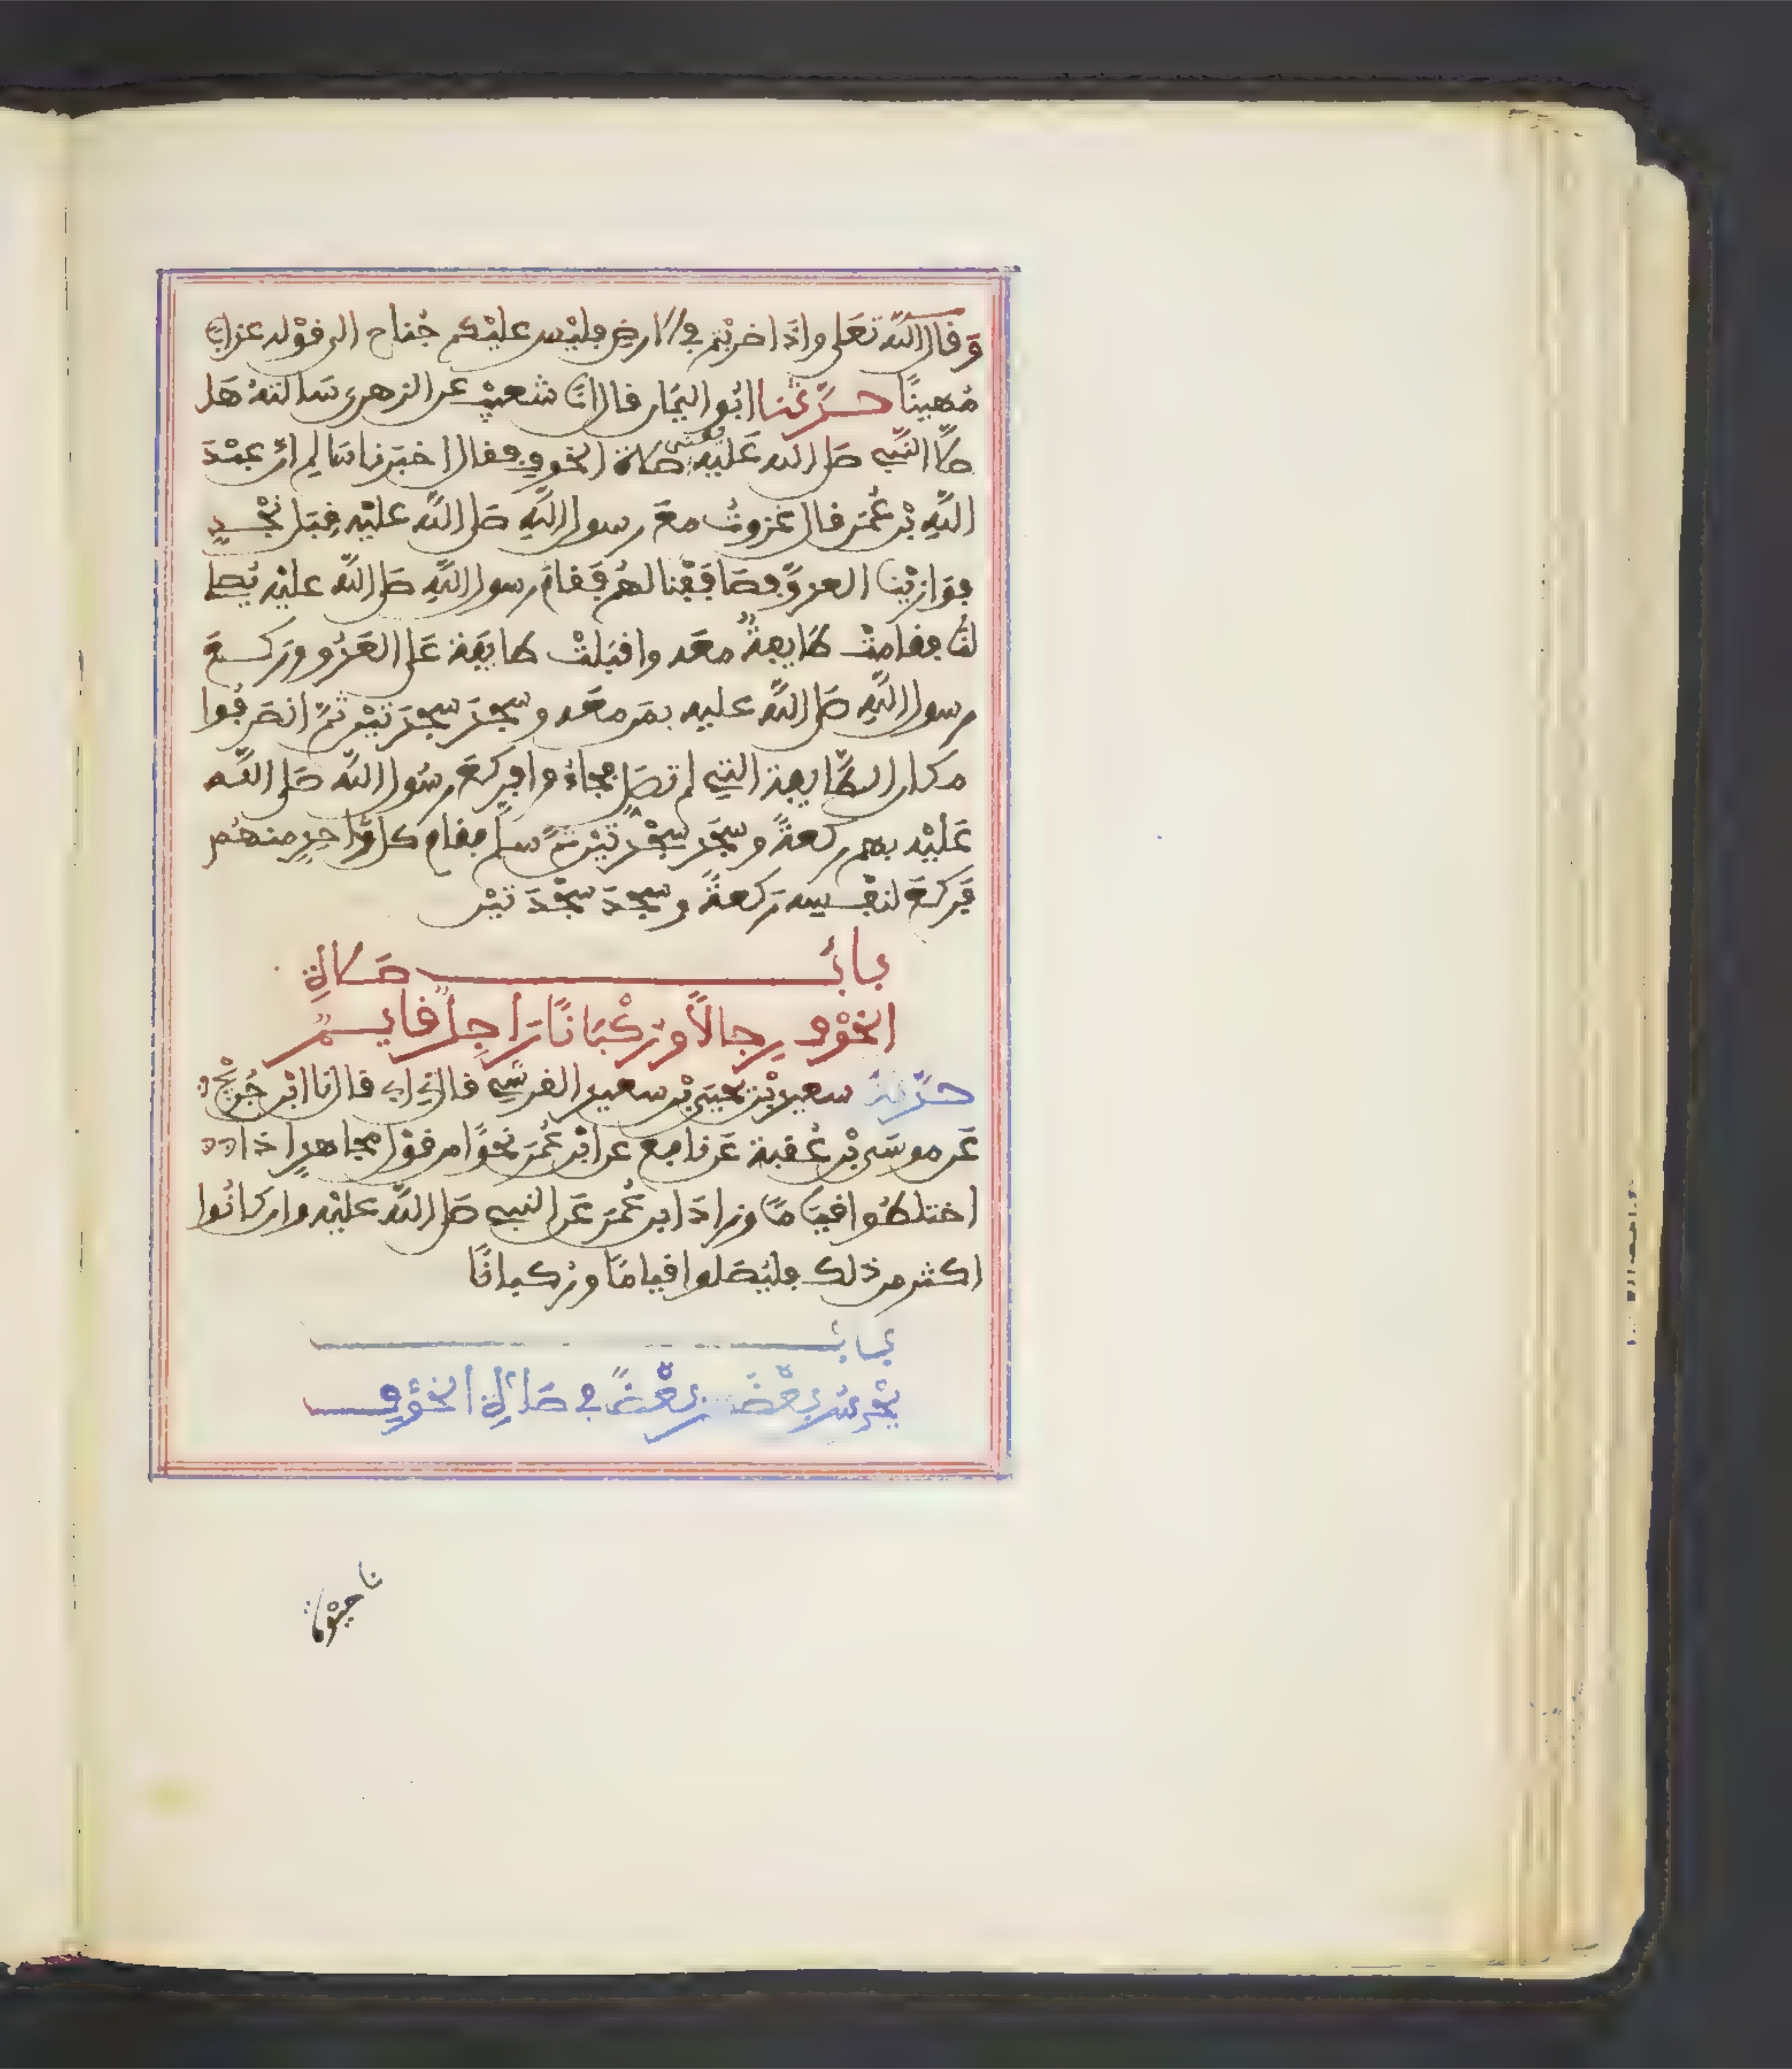 وَقال اللَّه تَعَلى واذَا ضربْتم في الارض فليْس عليْكم جُناح الى قوْله عذابا
مُهينًا حدَّثنا ابُو اليَمَان قال انَا شعيْب عن الزهرى سَالتهُ هَل
صلَّى النَّبِي صَلى الله عَليْه يعنى صَلاة الخوف فقال اخبَرنا سَالِم انَّ عبْدَ
اللَّهِ بْن عُمَر قال غزوتُ معَ رسول اللَّهِ صَلى اللَّه عليْه قِبَل نجْدٍ
فوَازيْنا العدوَّ فصَافَفْنا لهُم فَقامَ رسول اللَّهِ صَلى اللَّه عليْه يُصلي
لنَا فقامتْ طَايفةٌ معَه واقبَلتْ طايفَة عَلى العَدُو ورَكعَ
رسول اللَّهِ صَلى اللَّه عليه بمَن معَه وسجَدَ سجْدَتيْن ثمَّ انصَرفُوا
مكان الطَّايفة التِي لم تصَلِّ فجاءُوا فركعَ رسُول اللَّه صَلى اللَّه
عَليْه بهم ركعةً وسجَد سجْدَتيْن ثمَّ سلَّم فقام كل وَّاحِدٍ منهُم
فَركعَ لنفْسِه رَكعةً وسجدَ سجْدَتيْن
بابُ صَلاةِ
الخوْف رِجالاً ورُكْبَانًا رَاجِلٌ قايمٌ
حدَّثنا سعيد بْن يحيَى بْن سعيد القرشِي قال ني ابي قال انا ابْن جُريْج
عَن موسَى بْن عُقبة عَن نافع عن ابْن عُمَرَ نحْوًا من قوْل مجاهدٍ اذا
اختلطُوا قيَامًا وزادَ ابن عُمَرَ عَن النبِي صَلى اللَّه عليْه وان كانُوا
اكثر من ذلك فليُصَلوا قيامًا ورُكبانًا
بابُ
يحْرسُ بعْضهُم بعْضًا في صَلاةِ الخوْف
نا حيْوة